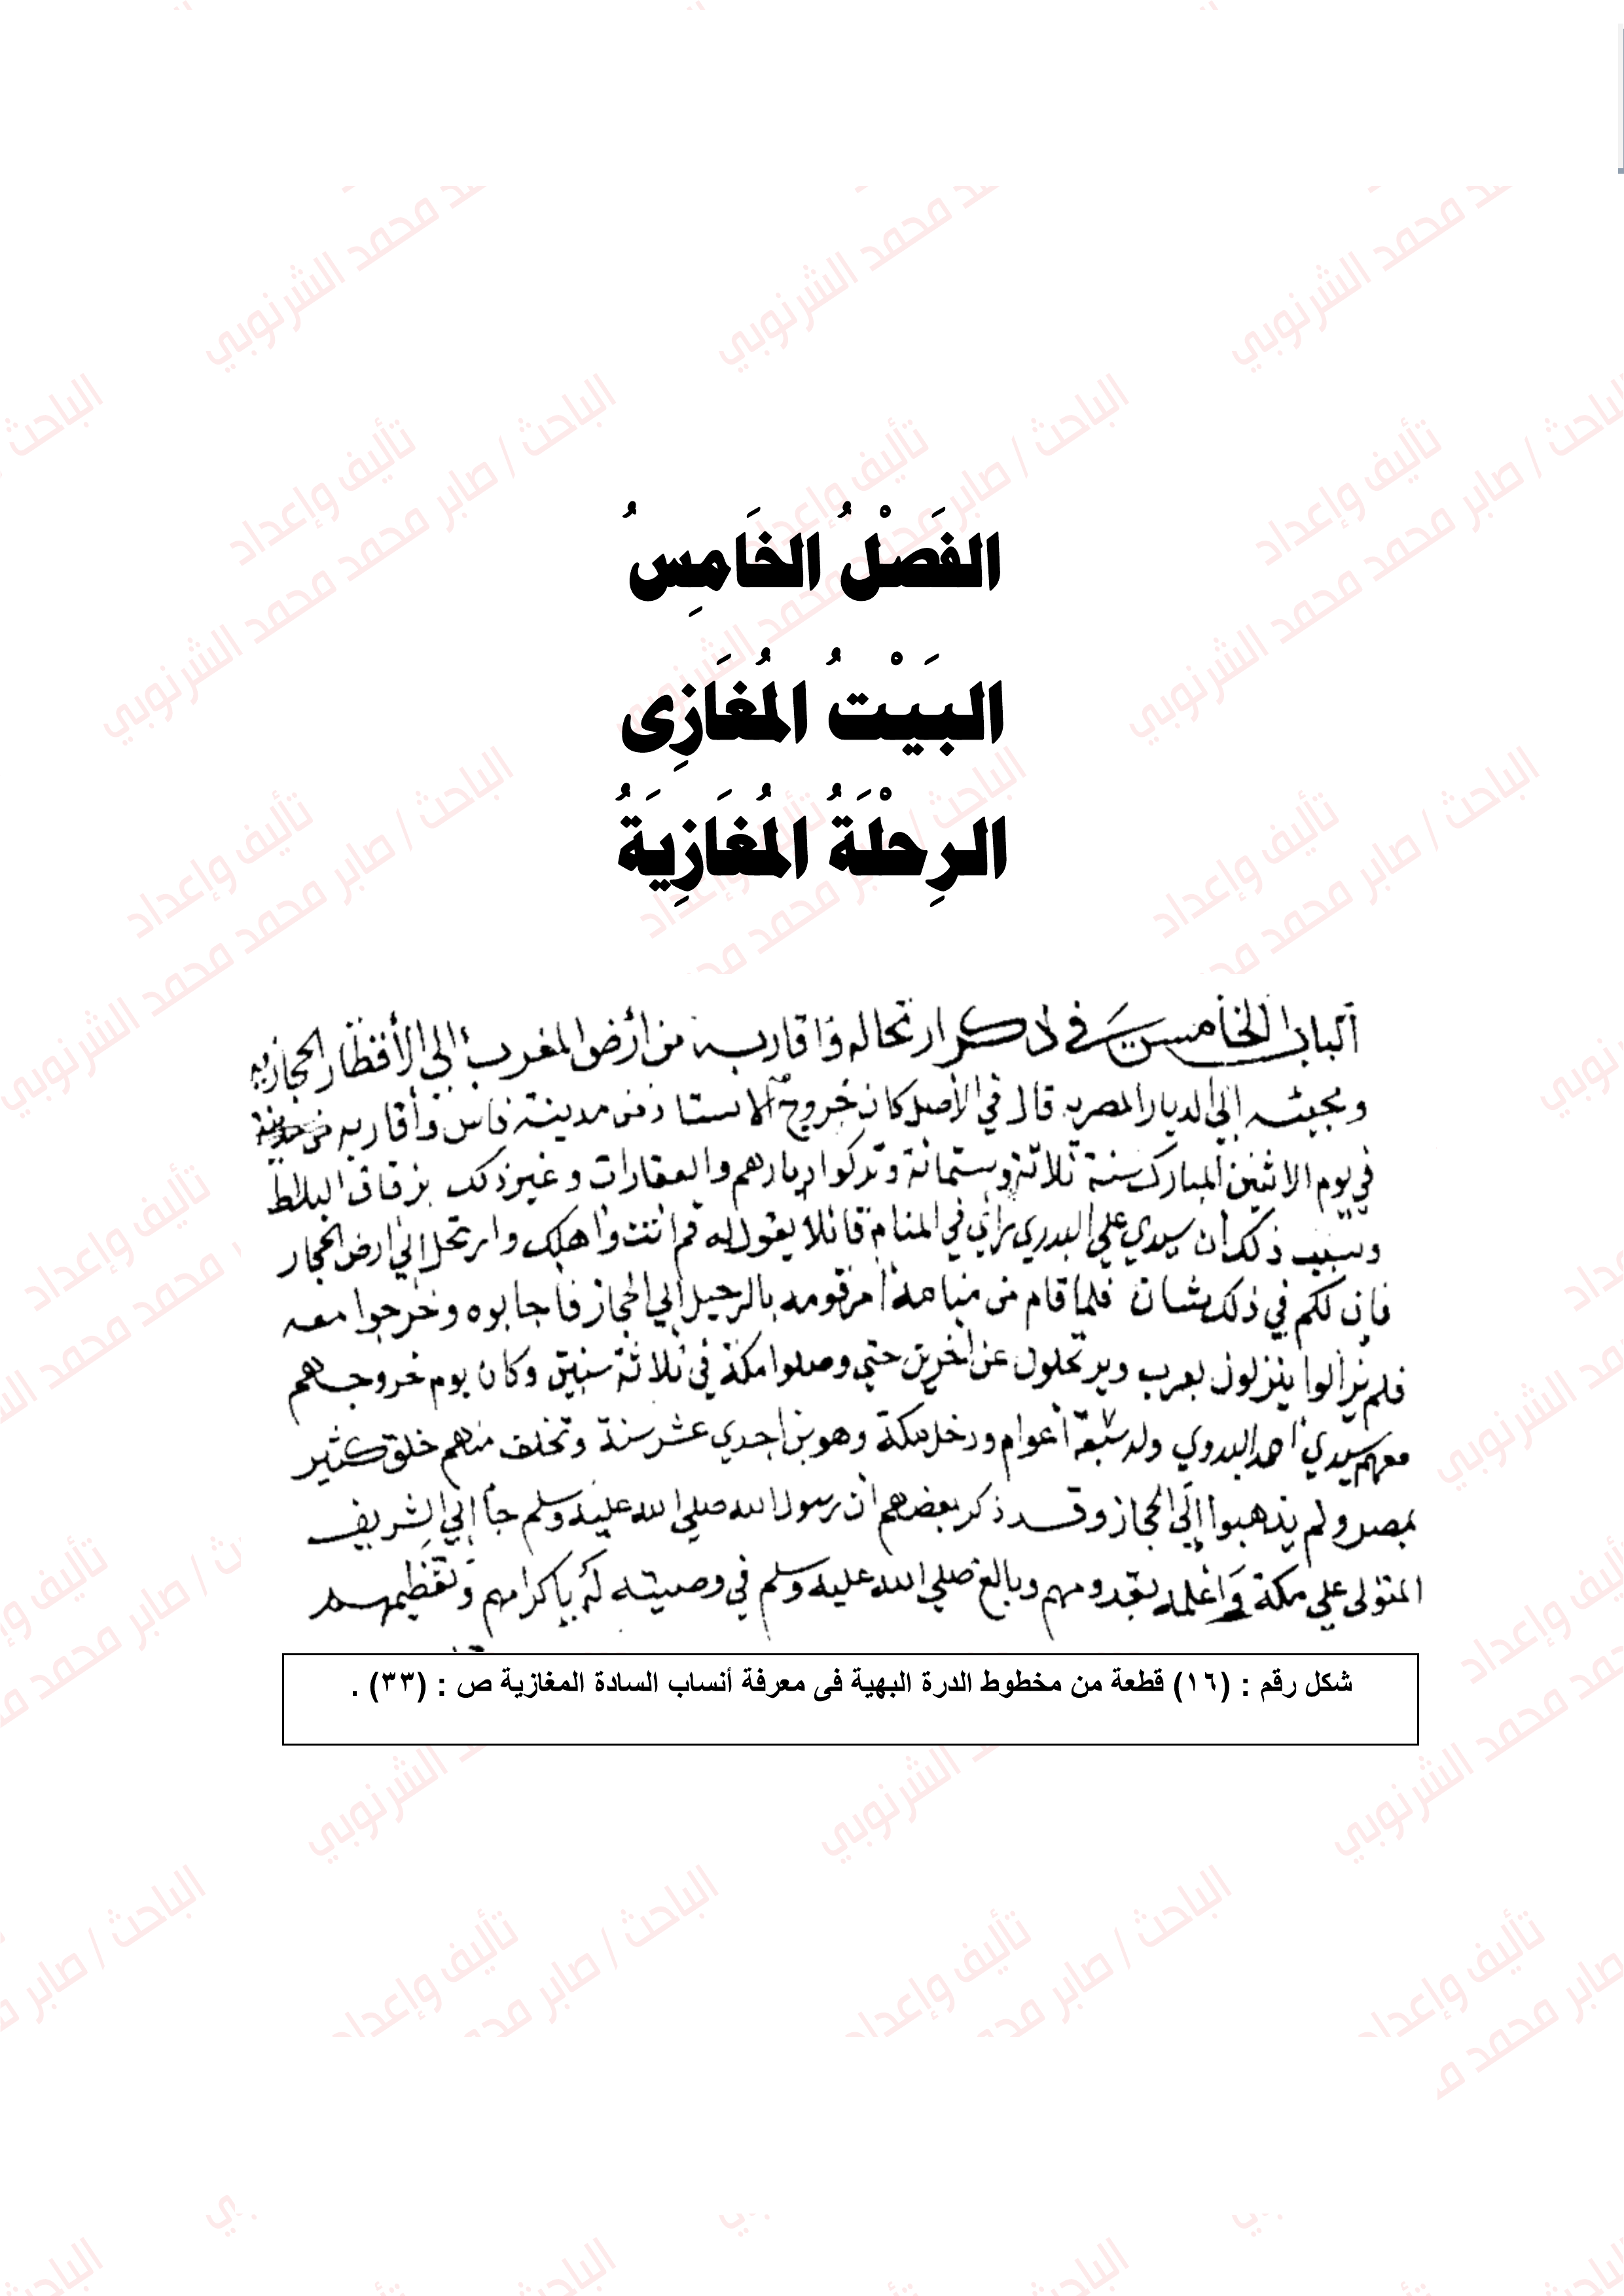 الفَصْلُ الخَامِسُ
البَيْتُ المُغَازِى
الرِحْلَةُ المُغَازِيَةُ
الباب الخامس في ذكر ارتحاله واقاربه من ارض المغرب الي الأقطار الحجازيه
ومجيئه الي الديار المصريه قال في الأصل كان خروج الاستاذ من مدينة فاس وأقاربه
في يوم الاثنين المبارك سنة ثلاثة وستمائة وتركوا ديارهم والعقارات وغير ذلك بزقاق البلاط
وسبب ذلك ان سيدي علي البدري رأي في المنام قائلا يقول له قم انت واهلك وارتحل الي ارض الحجاز
فان لكم في ذلك شان فلما قام من منامه أمر قومه بالرحيل الي الحجاز فأجابوه وخرجوا معه
فلم يزالوا ينزلون بعرب ويرتحلون عن اخرين حتي وصلوا مكة في ثلاثة سنين وكان يوم خروجهم
معهم سيدي احمد البدوي وله سبعة أعوام ودخل مكة وهو بن احدي عشر سنة وتخلف منهم خلق كثير
بمصر ولم يذهبوا إلي الحجاز وقد ذكر بعضهم ان رسول الله صلي الله عليه وسلم جا إلي الشريف
المتولى علي مكة واعلمه بقدومهم وبالغ صلي الله عليه وسلم في وصيته له بإكرامهم وتعظيمهم
شكل رقم : (١٦) قطعة من مخطوط الدرة البهية فى معرفة أنساب السادة المغازية ص : (٣٣) .
تأليف وإعداد
الباحث / صابر محمد محمد الشرنوبي